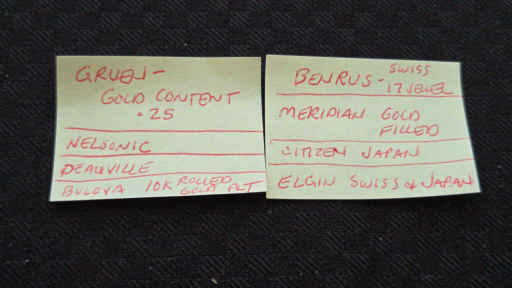 GRUEN -
GOLD CONTENT
.25
NELSONIC
DEAUVILLE
BULOVA 10K ROLLED
GOLD PLT
BENRUS - SWISS
17 JEWEL
MERIDIAN GOLD
FILLED
CITIZEN JAPAN
ELGIN SWISS & JAPAN